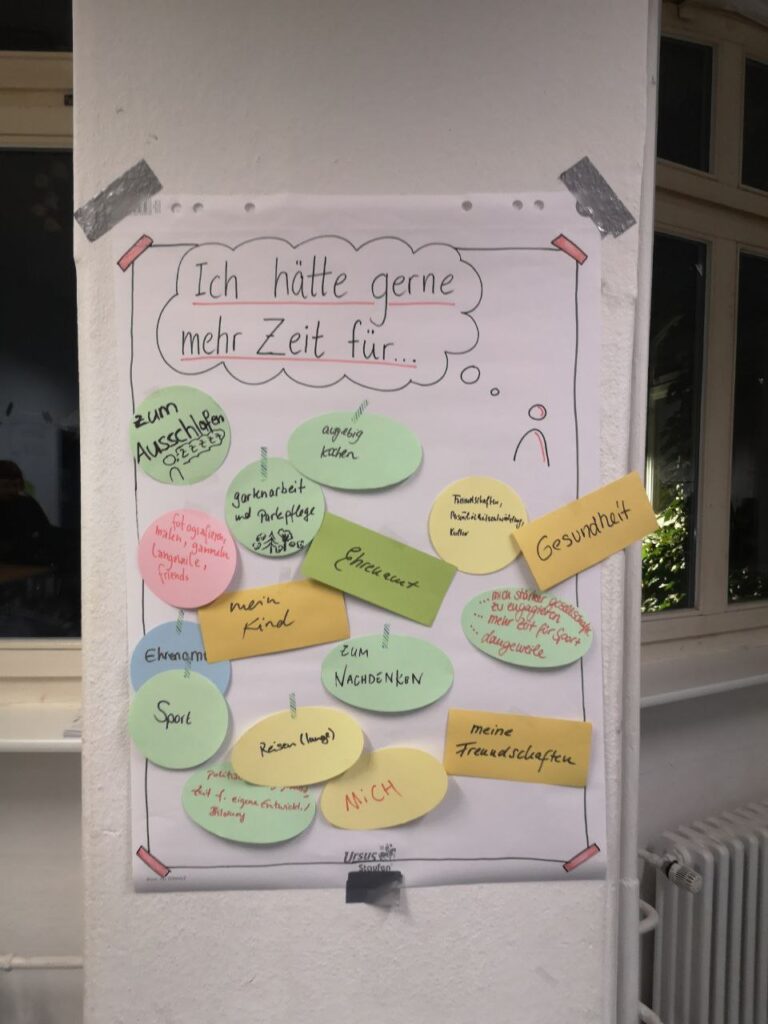 Ich hätte gerne
mehr Zeit für...
zum
Ausschlafen
ZZZZZ
ausgiebig
kochen
gartenarbeit
und Parkpflege
Freundschaften,
Persönlichkeitsentwicklung,
Kultur
Gesundheit
fotografieren,
malen, gammeln
Langeweile,
friends
Ehrenamt
mein
Kind
...mich stärker gesellschaftl.
zu engagieren
...mehr Zeit für Sport
...Langeweile
Ehrenamt
ZUM
NACHDENKEN
Sport
Reisen (lange)
meine
Freundschaften
MICH
Zeit f. eigene Entwickl./
Bildung
Ursus
Staufen